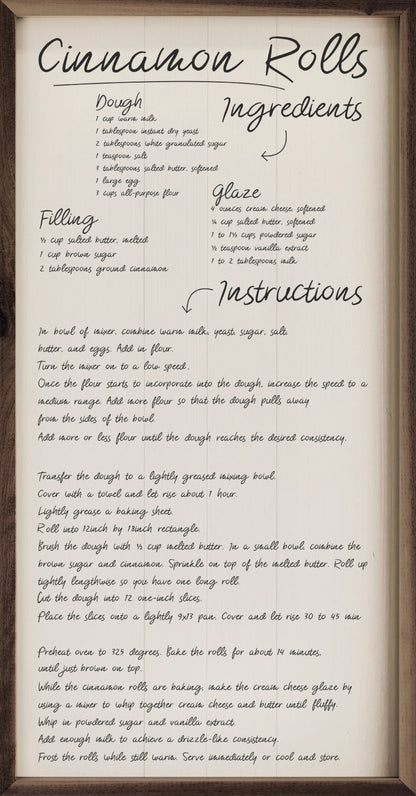 Cinnamon Rolls
Dough
1 cup warm milk
1 tablespoon instant dry yeast
2 tablespoons white granulated sugar
1 teaspoon salt
3 tablespoons salted butter, softened
1 large egg
3 cups all-purpose flour
Ingredients
Glaze
4 ounces cream cheese, softened
¼ cup salted butter, softened
1 to 1½ cups powdered sugar
½ teaspoon vanilla extract
1 to 2 tablespoons milk
Filling
½ cup salted butter, melted
1 cup brown sugar
2 tablespoons ground cinnamon
Instructions
In bowl of mixer, combine warm milk, yeast, sugar, salt,
butter, and eggs. Add in flour.
Turn the mixer on to a low speed.
Once the flour starts to incorporate into the dough, increase the speed to a
medium range. Add more flour so that the dough pulls away
from the sides of the bowl.
Add more or less flour until the dough reaches the desired consistency.
Transfer the dough to a lightly greased mixing bowl.
Cover with a towel and let rise about 1 hour.
Lightly grease a baking sheet.
Roll into 12inch by 18inch rectangle.
Brush the dough with ½ cup melted butter. In a small bowl, combine the
brown sugar and cinnamon. Sprinkle on top of the melted butter. Roll up
tightly lengthwise so you have one long roll.
Cut the dough into 12 one-inch slices.
Place the slices onto a lightly 9x13 pan. Cover and let rise 30 to 45 min
Preheat oven to 325 degrees. Bake the rolls for about 14 minutes,
until just brown on top.
While the cinnamon rolls are baking, make the cream cheese glaze by
using a mixer to whip together cream cheese and butter until fluffy.
Whip in powdered sugar and vanilla extract.
Add enough milk to achieve a drizzle-like consistency.
Frost the rolls while still warm. Serve immediately or cool and store.